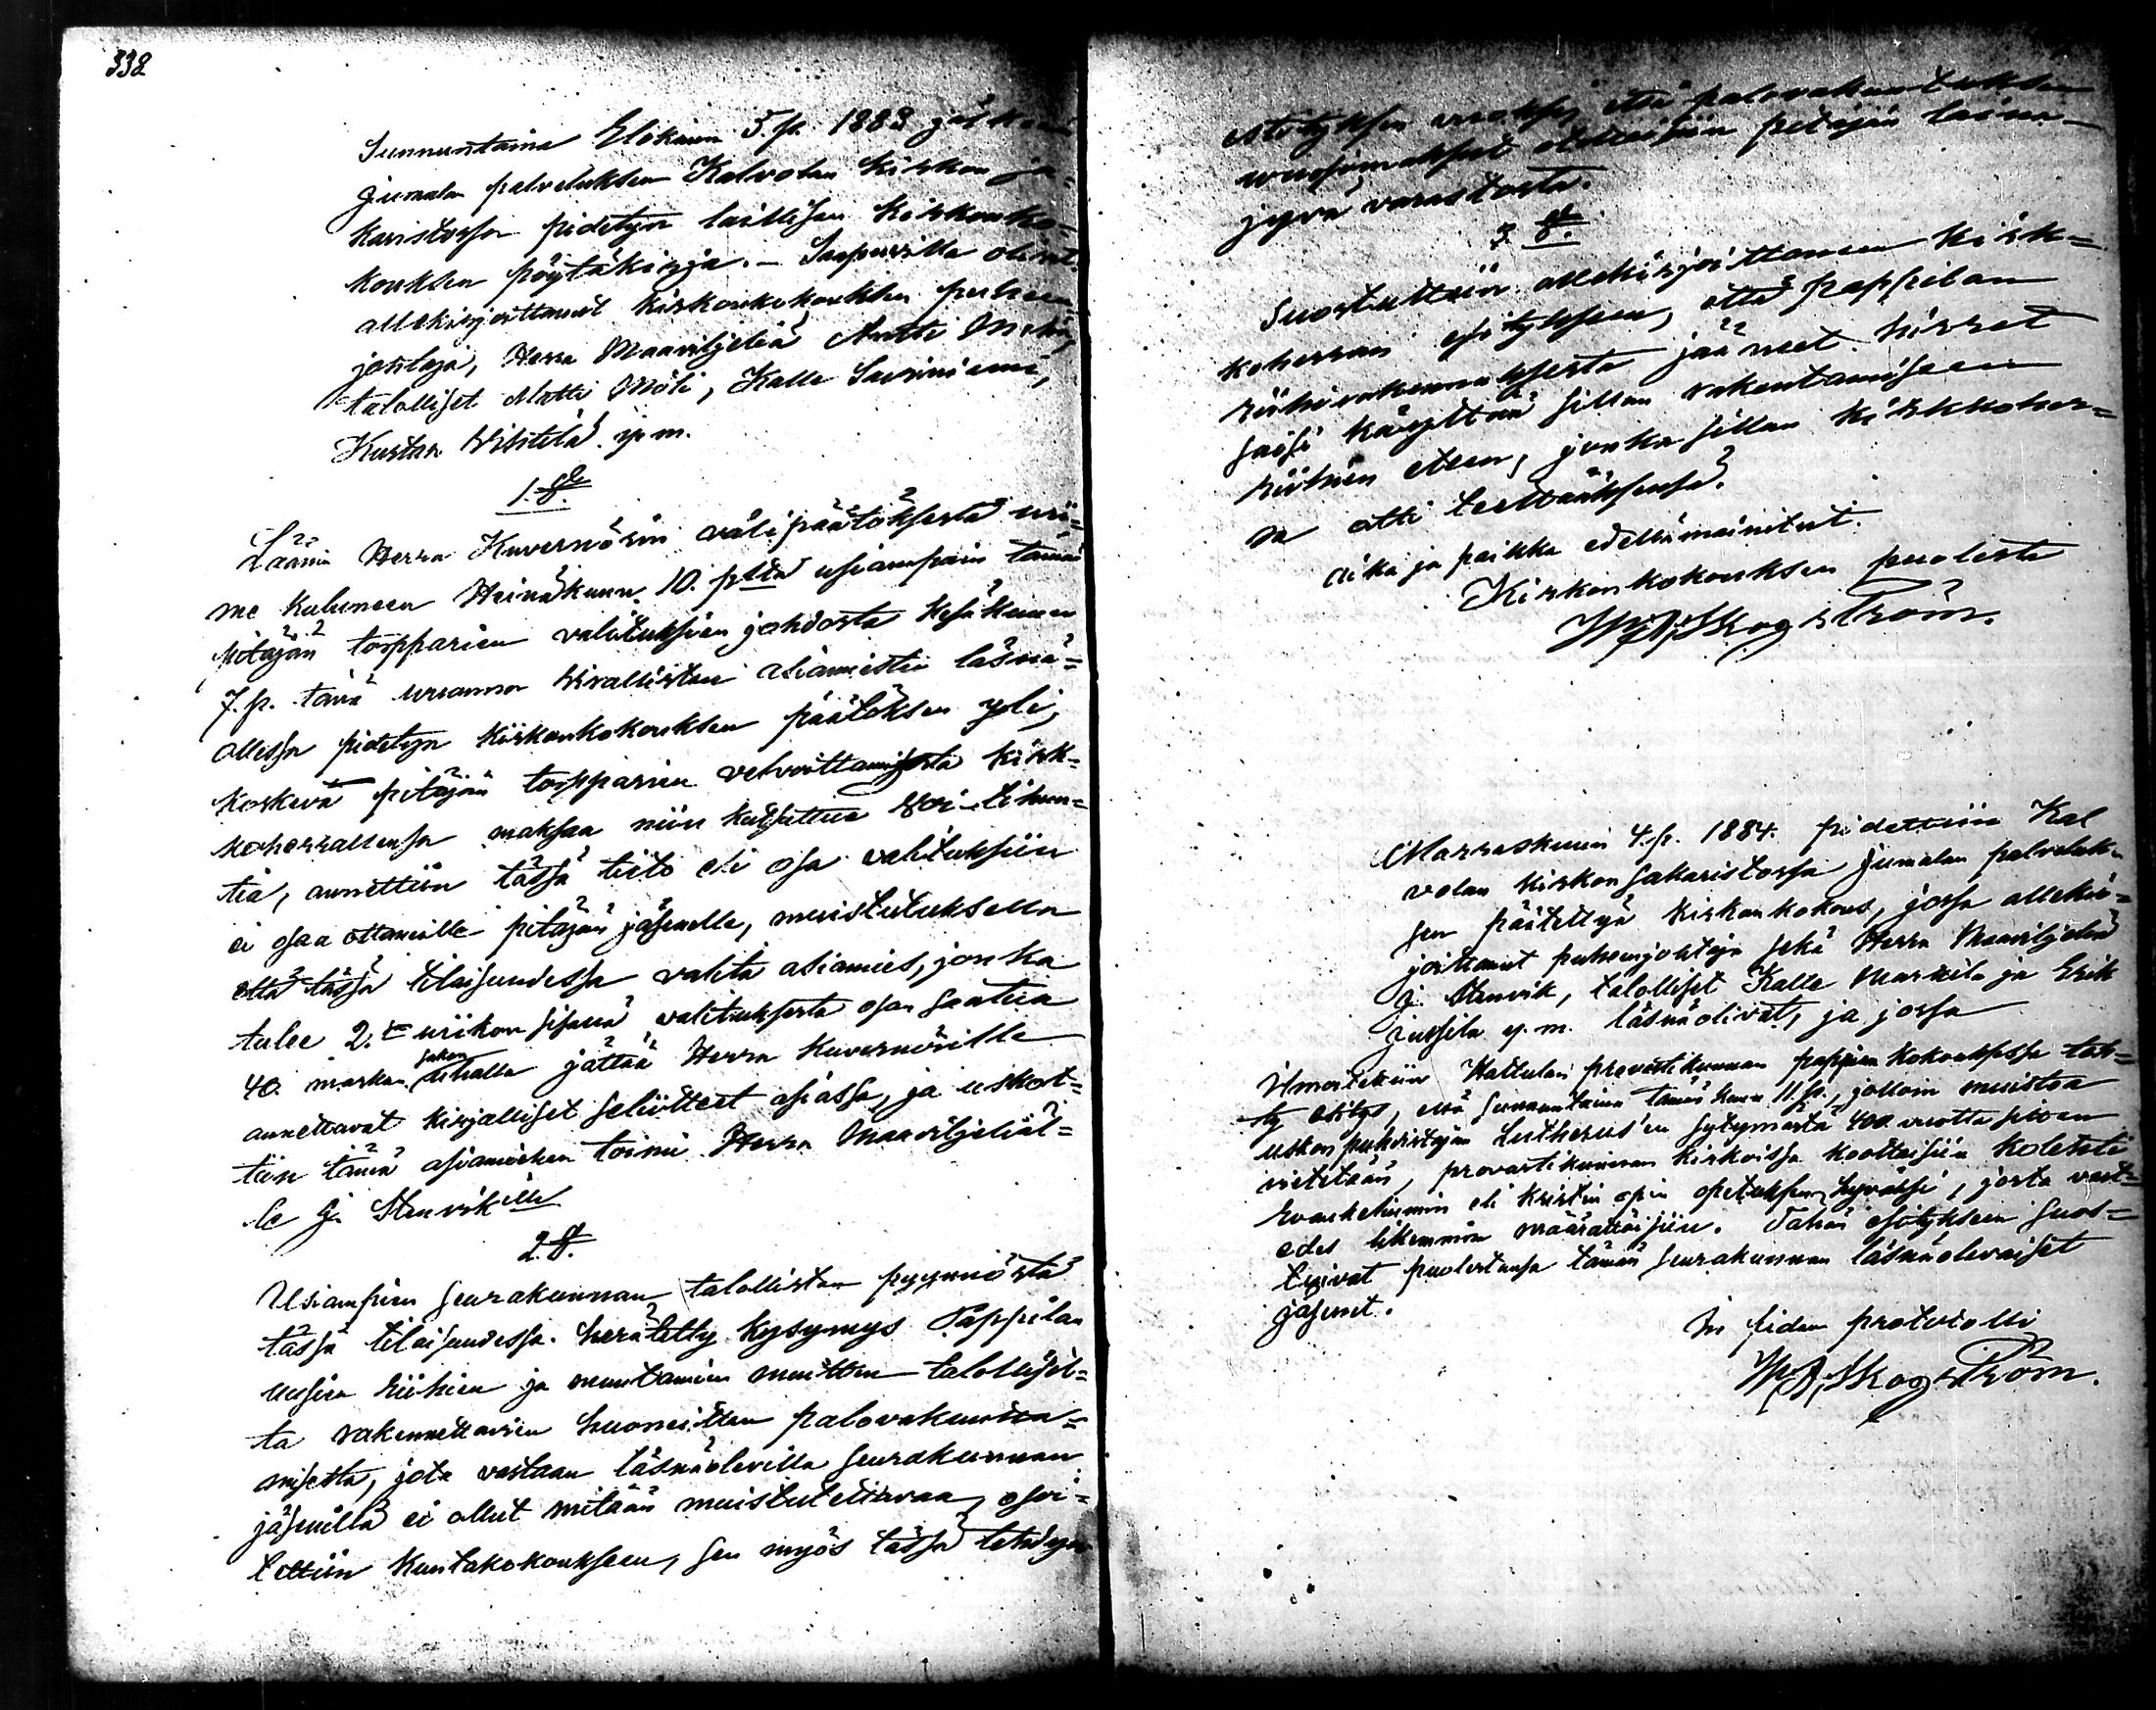 332
Sunnuntaina Elokuun 5. p. 1883 jälkeen
Jumalan palveluksen Kalvolan kirkon sa=
karistossa pidetyn laillisen kirkonko=
kouksen pöytäkirja. – Saapuvilla olivat
allekirjoittanut kirkonkokouksen puheen
johtaja, Herra Maanviljeliä Antti
talolliset Matti Möli, Kalle Sauriniemi,
Kustaa Vihtilä y. m.
1. §.
Läänin Herra Kuvernörin välipäätöksestä vii=
me kuluneen Heinäkuun 10. pltä usiampain tämän
pitäjän torpparien valituksien johdosta Kesäkuun
7. p. tänä vuonna kivallisten asiamiesten läsnä=
ollessa pidetyn kirkonkokouksen päätöksen yli,
koskeva pitäjän torpparien velvoittamisesta kirk=
koherrallensa maksaa niin kutsuttua voi-tihun=
tia, annettiin tässä tieto eli osa valituksiin
ei osaa ottaneille pitäjän jäsenelle, muistutuksella
että tässä tilaisuudessa valita asiamies, jonka
tulee 2. viikon sisässä valituksesta osan saatua
40. markan sakon uhalla jättää Herra Kuvernörille
annettavat kirjalliset selitykset asiassa, ja uskot=
tiin tämä asiamiehen toimi Herra Maanviljeliäl=
le G. Stenvik'ille
2. §.
Usiampien seurakunnan talollisten pyynnöstä
tässä tilaisuudessa herätetty kysymys Pappilan
uusien riihien ja muutamien muitten talollisil=
ta rakennettavien huoneitten palovakuutta=
misesta, jota vastaan läsnäolevilla seurakunnan
jäsenillä ei ollut mitään muistutettavaa, osoi=
tettiin Kuntakokoukseen, sen myös tässä tehdyn
esityksen vuoksi, että palovakuutuksen
vuosimaksut otettaisiin pitäjän laina=
jyvä varastosta.
3. §.
Suostuttiin allekirjoittaneen kirk=
koherran esitykseen, että pappilan
riihirakennuksesta jääneet hirret
saisi käyttää sillan rakentamiseen
riihien eteen, jonka sillan kirkkoher=
ra otti teettääksensä.
Aika ja paikka edellämainitut.
Kirkonkokouksen puolesta
W. A. Skogström.
Marraskuun 4. p. 1884. pidettiin Kal
volan kirkon sakaristossa Jumalan palveluk=
sen päätettyä kirkonkokous, jossa allekir=
joittanut puheenjohtaja sekä Herra Maanviljeliä
G. Stenvik, talolliset Kalle Markila ja Erik
Jussila y. m. läsnäolivat, ja jossa
Ilmoitettiin Hattulan provastikunnan pappein kokouksessa teh=
ty esitys, että sunnuntaina tämän kuun 11. p., jolloin muistoa
uskon puhdistajan Lutherus'en syntymästä 400. vuotta sitten
vietetään, provastikunnan kirkoissa koottaisiin kolehti
Evankeliumin eli kristin opin opetuksen hyväksi, josta vast=
edes likemmin määrättäisiin. Tähän esitykseen suos=
tuivat puolestansa tämän seurakunnan läsnäolevaiset
jäsenet.
In fidem protocolli
W. A. Skogström.